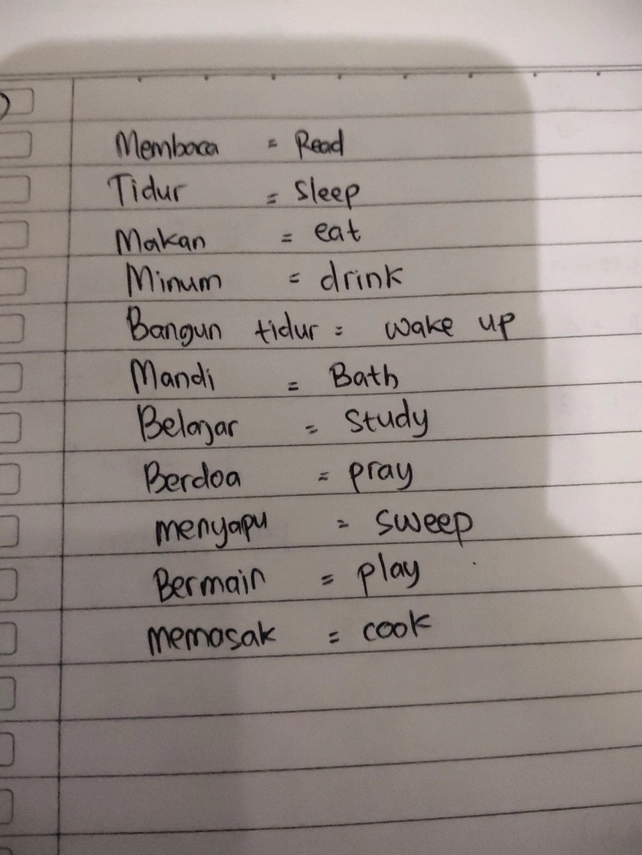 Membaca = Read
Tidur = Sleep
Makan = eat
Minum = drink
Bangun tidur = wake up
Mandi = Bath
Belajar = Study
Berdoa = pray
menyapu = sweep
Bermain = play
memasak = cook